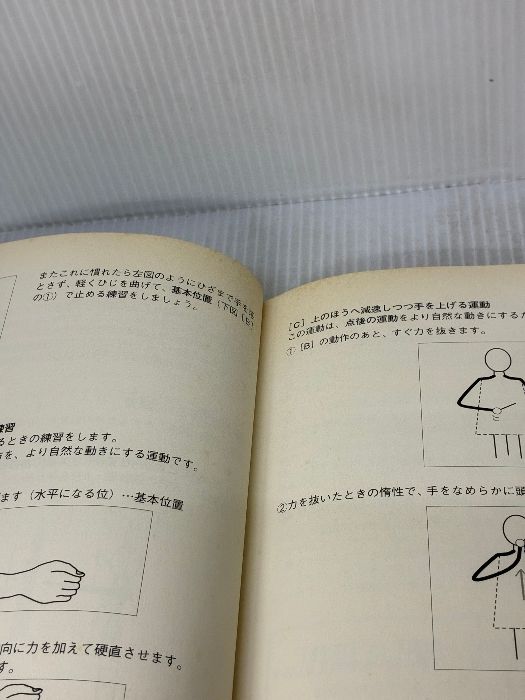 またこれに慣れたら左図のようにひざまで手を落
とさず、軽くひじを曲げて、基本位置（下図［B］
の①）で止める練習をしましょう。
練習
るときの練習をします。
を、より自然な動きにする運動です。
ます（水平になる位）…基本位置
向に力を加えて硬直させます。
す。
［C］上のほうへ減速しつつ手を上げる運動
この運動は、点後の運動をより自然な動きにするた
①［B］の動作のあと、すぐ力を抜きます。
②力を抜いたときの惰性で、手をなめらかに頭